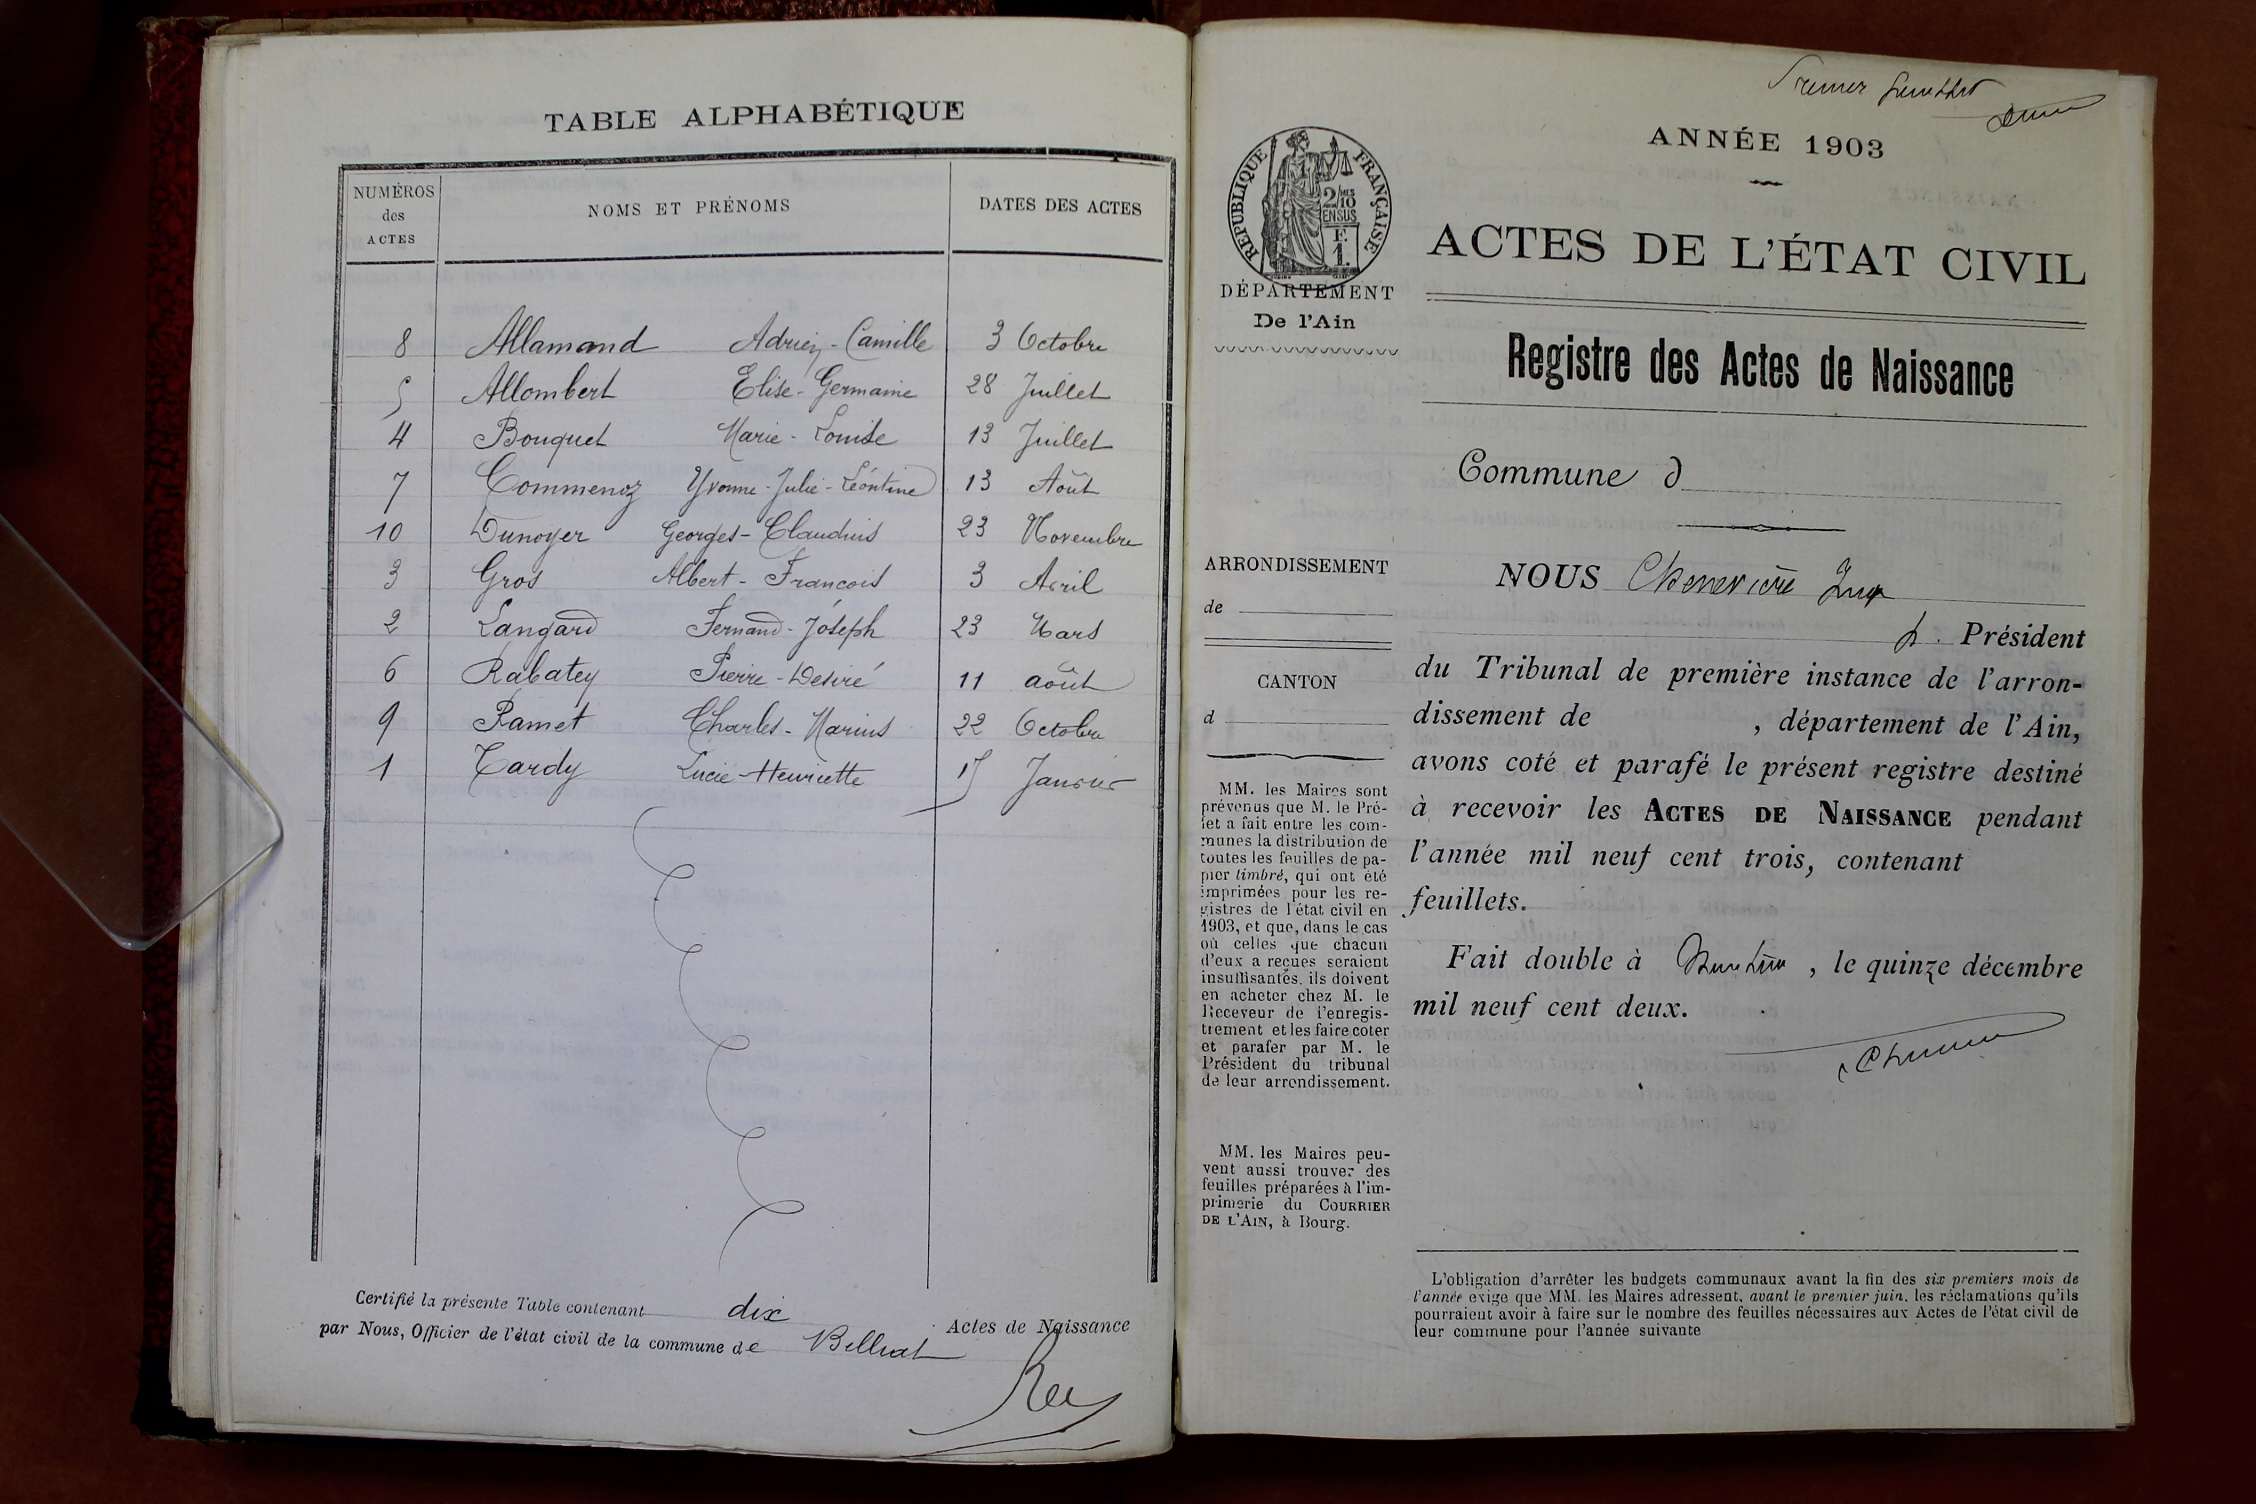 TABLE ALPHABÉTIQUE
NUMÉROS des ACTES NOMS ET PRÉNOMS DATES DES ACTES
8 Allamand Adrien-Camille 3 Octobre
5 Allombert Elise-Germaine 28 Juillet
4 Bouquet Marie-Louise 13 Juillet
7 Commenoz Yvonne-Julie-Léontine 13 Août
10 Dunoyer Georges-Claudius 23 Novembre
3 Gros Albert-Francois 3 Avril
2 Langard Fernand-Joseph 23 Mars
6 Rabatey Pierre-Desiré 11 août
9 Ramet Charles-Marius 22 Octobre
1 Tardy Lucie-Henriette 15 Janvier
Certifié la présente Table contenant dix Actes de Naissance
par Nous, Officier de l'état civil de la commune de Belleat
Premier feuillet
ANNÉE 1903
RÉPUBLIQUE FRANÇAISE
2/10 MES
EN SUS
F.
1.
DÉPARTEMENT
De l'Ain
ACTES DE L'ÉTAT CIVIL
Registre des Actes de Naissance
Commune d
ARRONDISSEMENT
de
CANTON
d
MM. les Maires sont
prévenus que M. le Pré-
fet a fait entre les com-
munes la distribution de
toutes les feuilles de pa-
pier timbré, qui ont été
imprimées pour les re-
gistres de l'état civil en
1903, et que, dans le cas
où celles que chacun
d'eux a reçues seraient
insuffisantes, ils doivent
en acheter chez M. le
Receveur de l'enregis-
trement et les faire coter
et parafer par M. le
Président du tribunal
de leur arrondissement.
MM. les Maires peu-
vent aussi trouver des
feuilles préparées à l'im-
primerie du COURRIER
DE L'AIN, à Bourg.
NOUS Chenevière Juge
p. Président
du Tribunal de première instance de l'arron-
dissement de , département de l'Ain,
avons coté et parafé le présent registre destiné
à recevoir les ACTES DE NAISSANCE pendant
l'année mil neuf cent trois, contenant
feuillets.
Fait double à Nantua, le quinze décembre
mil neuf cent deux.
L'obligation d'arrêter les budgets communaux avant la fin des six premiers mois de
l'année exige que MM. les Maires adressent, avant le premier juin, les réclamations qu'ils
pourraient avoir à faire sur le nombre des feuilles nécessaires aux Actes de l'état civil de
leur commune pour l'année suivante